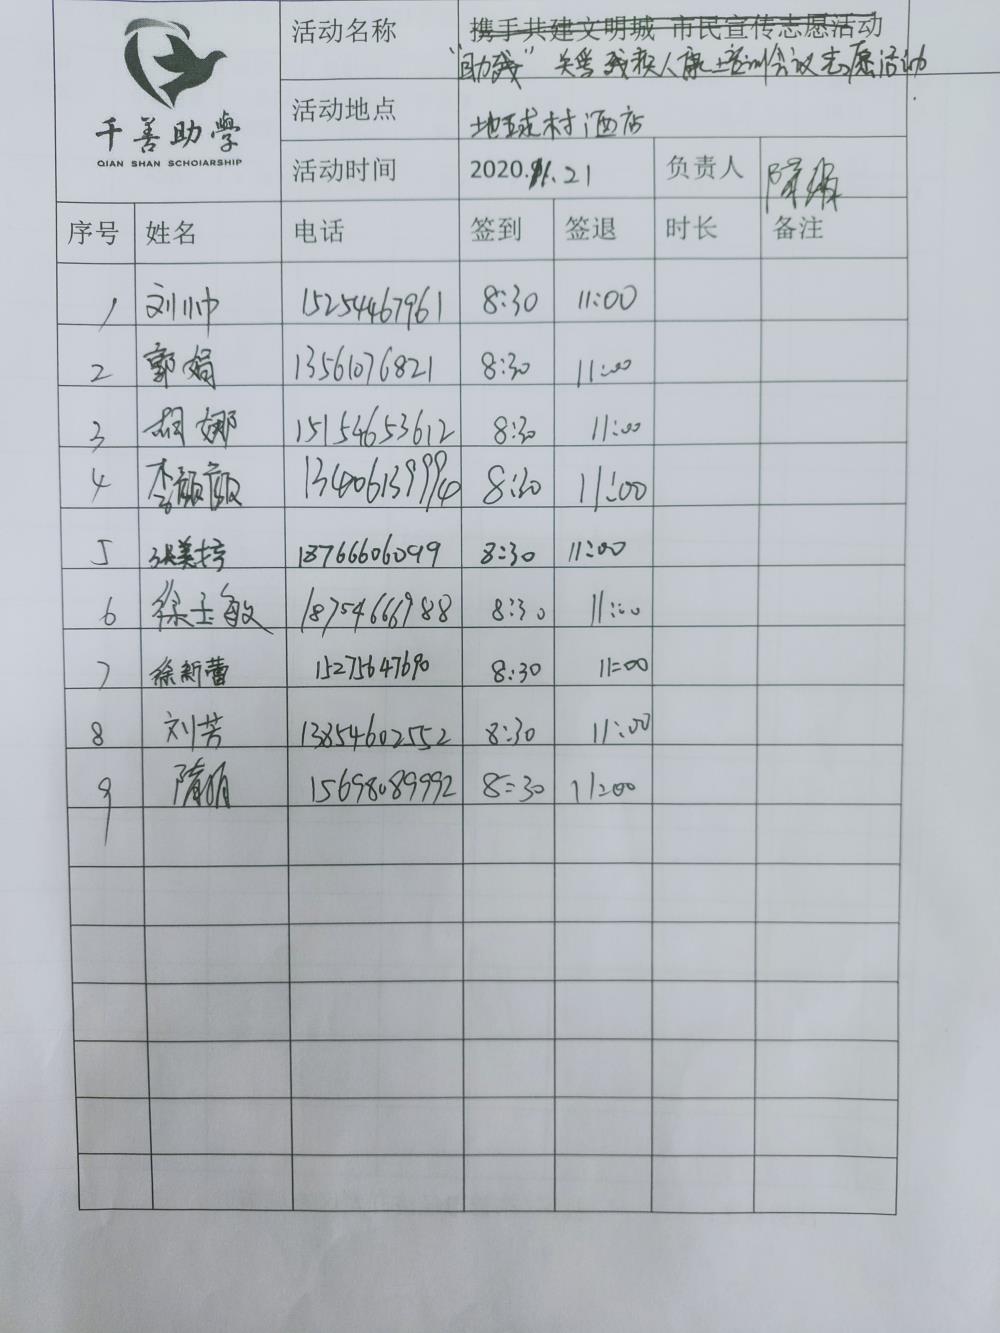 千善助學
QIAN SHAN SCHOlARSHIP
活动名称 携手共建文明城 市民宣传志愿活动
"助残" 关爱残疾人康 培训会议志愿活动
活动地点 地球村酒店
活动时间 2020.11.21 负责人
序号 姓名 电话 签到 签退 时长 备注
1 刘小巾 15254467961 8:30 11:00
2 郭娟 13561076821 8:30 11:00
3 娜 15154653612 8:30 11:00
4 李颜颜 13406139994 8:30 11:00
5 张美婷 18766606099 8:30 11:00
6 徐玉敏 18754666988 8:30 11:00
7 徐新蕾 15275647690 8:30 11:00
8 刘芳 13854602552 8:30 11:00
9 隋娟 15698089992 8:30 11:00